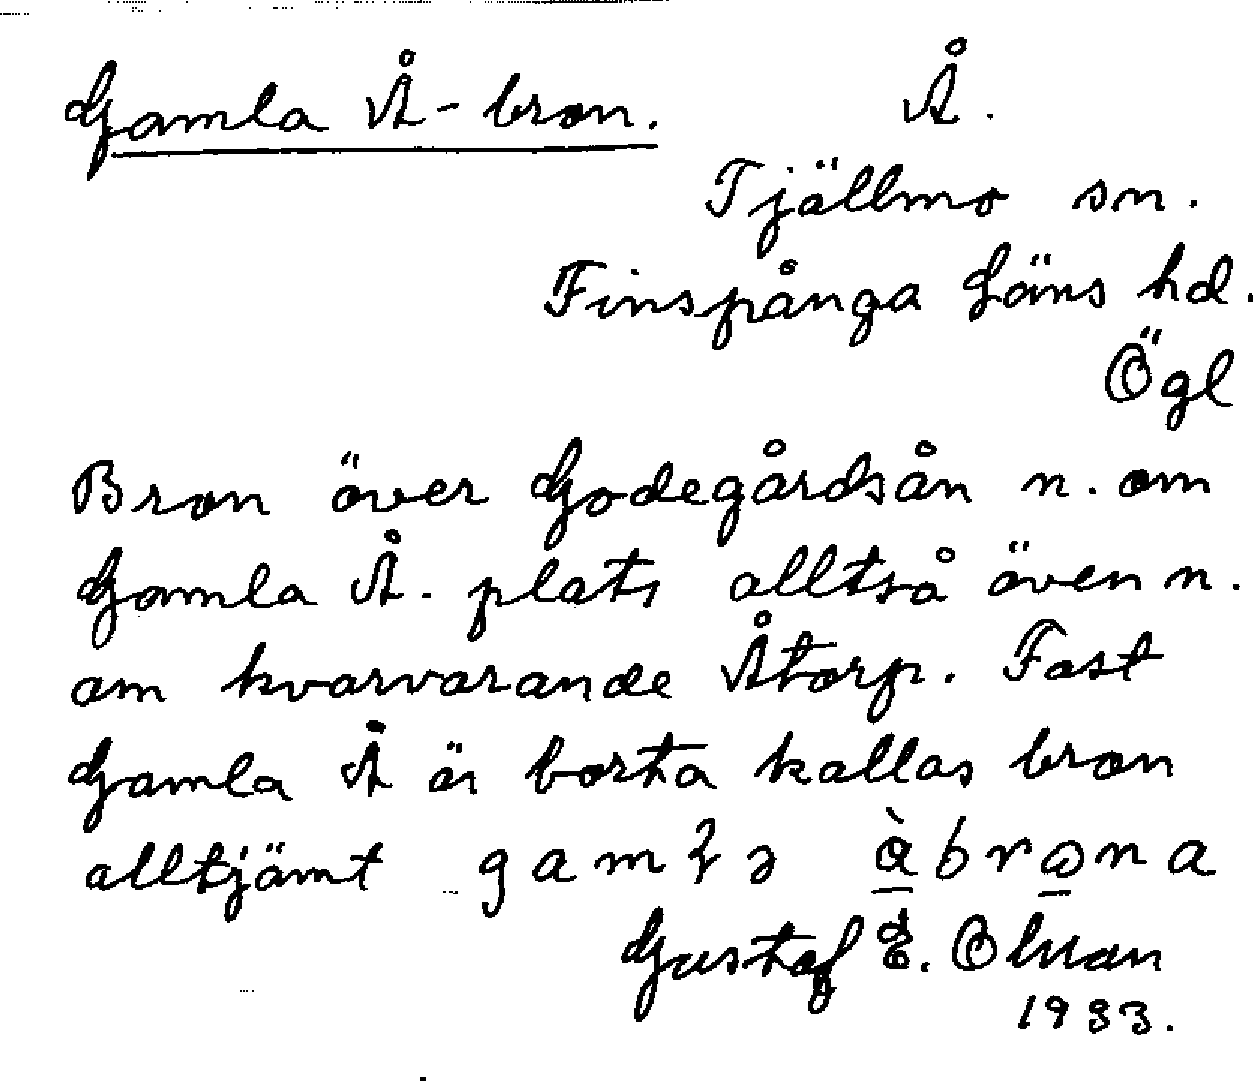 Gamla Å-bron. Å.
Tjällmo sn.
Finspånga läns hd.
Ögl
Bron över Godegårdsån n. om
Gamla Å. plats alltså även n.
om kvarvarande Åtorp. Fast
Gamla Å är borta kallas bron
alltjämt
Gustaf E. Olsson
1933.